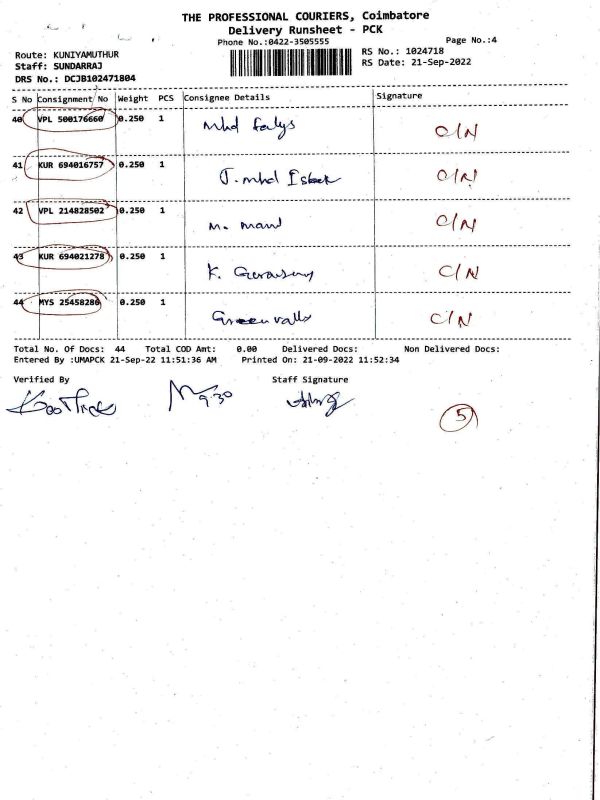 THE PROFESSIONAL COURIERS, Coimbatore
Delivery Runsheet - PCK
Phone No.:0422-3505555
Page No.:4
Route: KUNIYAMUTHUR
RS No.: 1024718
Staff: SUNDARRAJ
RS Date: 21-Sep-2022
DRS No.: DCJB102471804
S No Consignment No Weight PCS Consignee Details Signature
40 VPL 500176660 0.250 1 Mhd C/N
41 KUR 694016757 0.250 1 J. Mhd C/N
42 VPL 214828502 0.250 1 M. C/N
43 KUR 694021278 0.250 1 K. C/N
44 MYS 25458280 0.250 1 Greenvalls C/N
Total No. Of Docs: 44 Total COD Amt: 0.00 Delivered Docs: Non Delivered Docs:
Entered By :UMAPCK 21-Sep-22 11:51:36 AM Printed On: 21-09-2022 11:52:34
Verified By Staff Signature
9.30
5